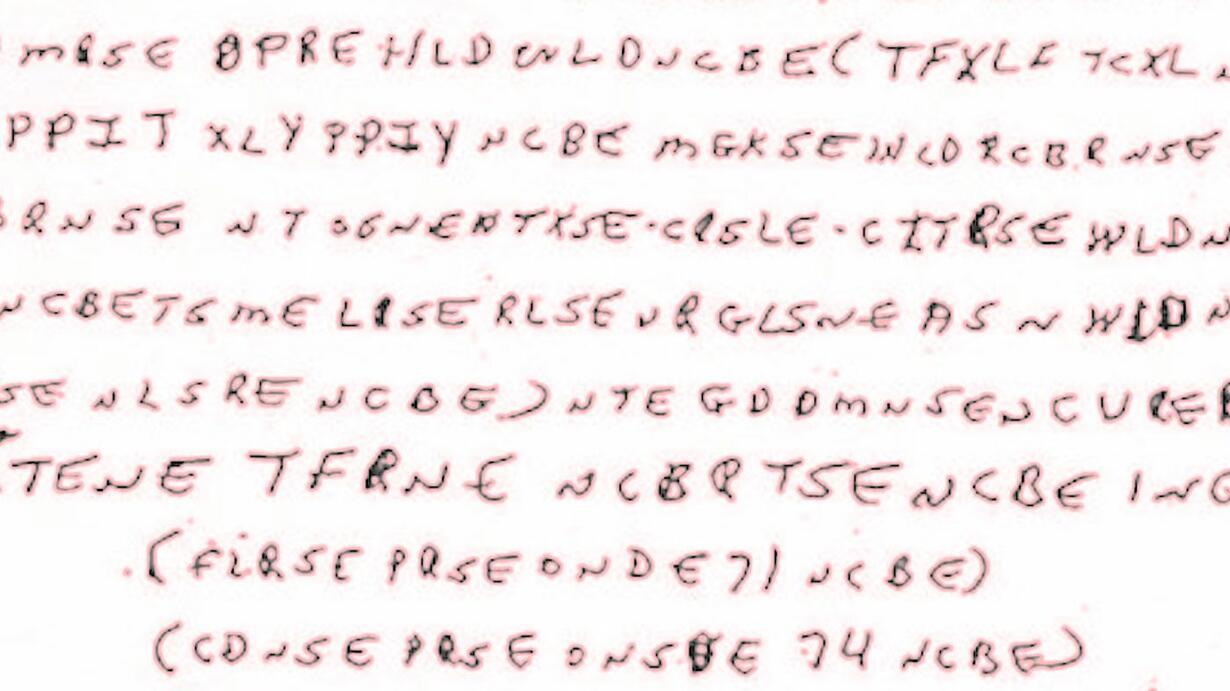 mRSE OPREHLDWLDNCBE(TFXLF TCXL N
PPIT XLY PPIY NCBE mGKSEWLDRCBRNSE
BRNSE NTOGNENTXSE-CRSLE-CITRSE WLDN
NCBETSmELRSERLSEURGLSNEASNWLDN
SE NLSRE NCBE)NTEGDDmNSENCURER
TENE TFRNE NCBRTSENCBE INC
(FLRSE PRSEONDE71 NCBE)
(CDNSE PRSEONSDE 74 NCBE)